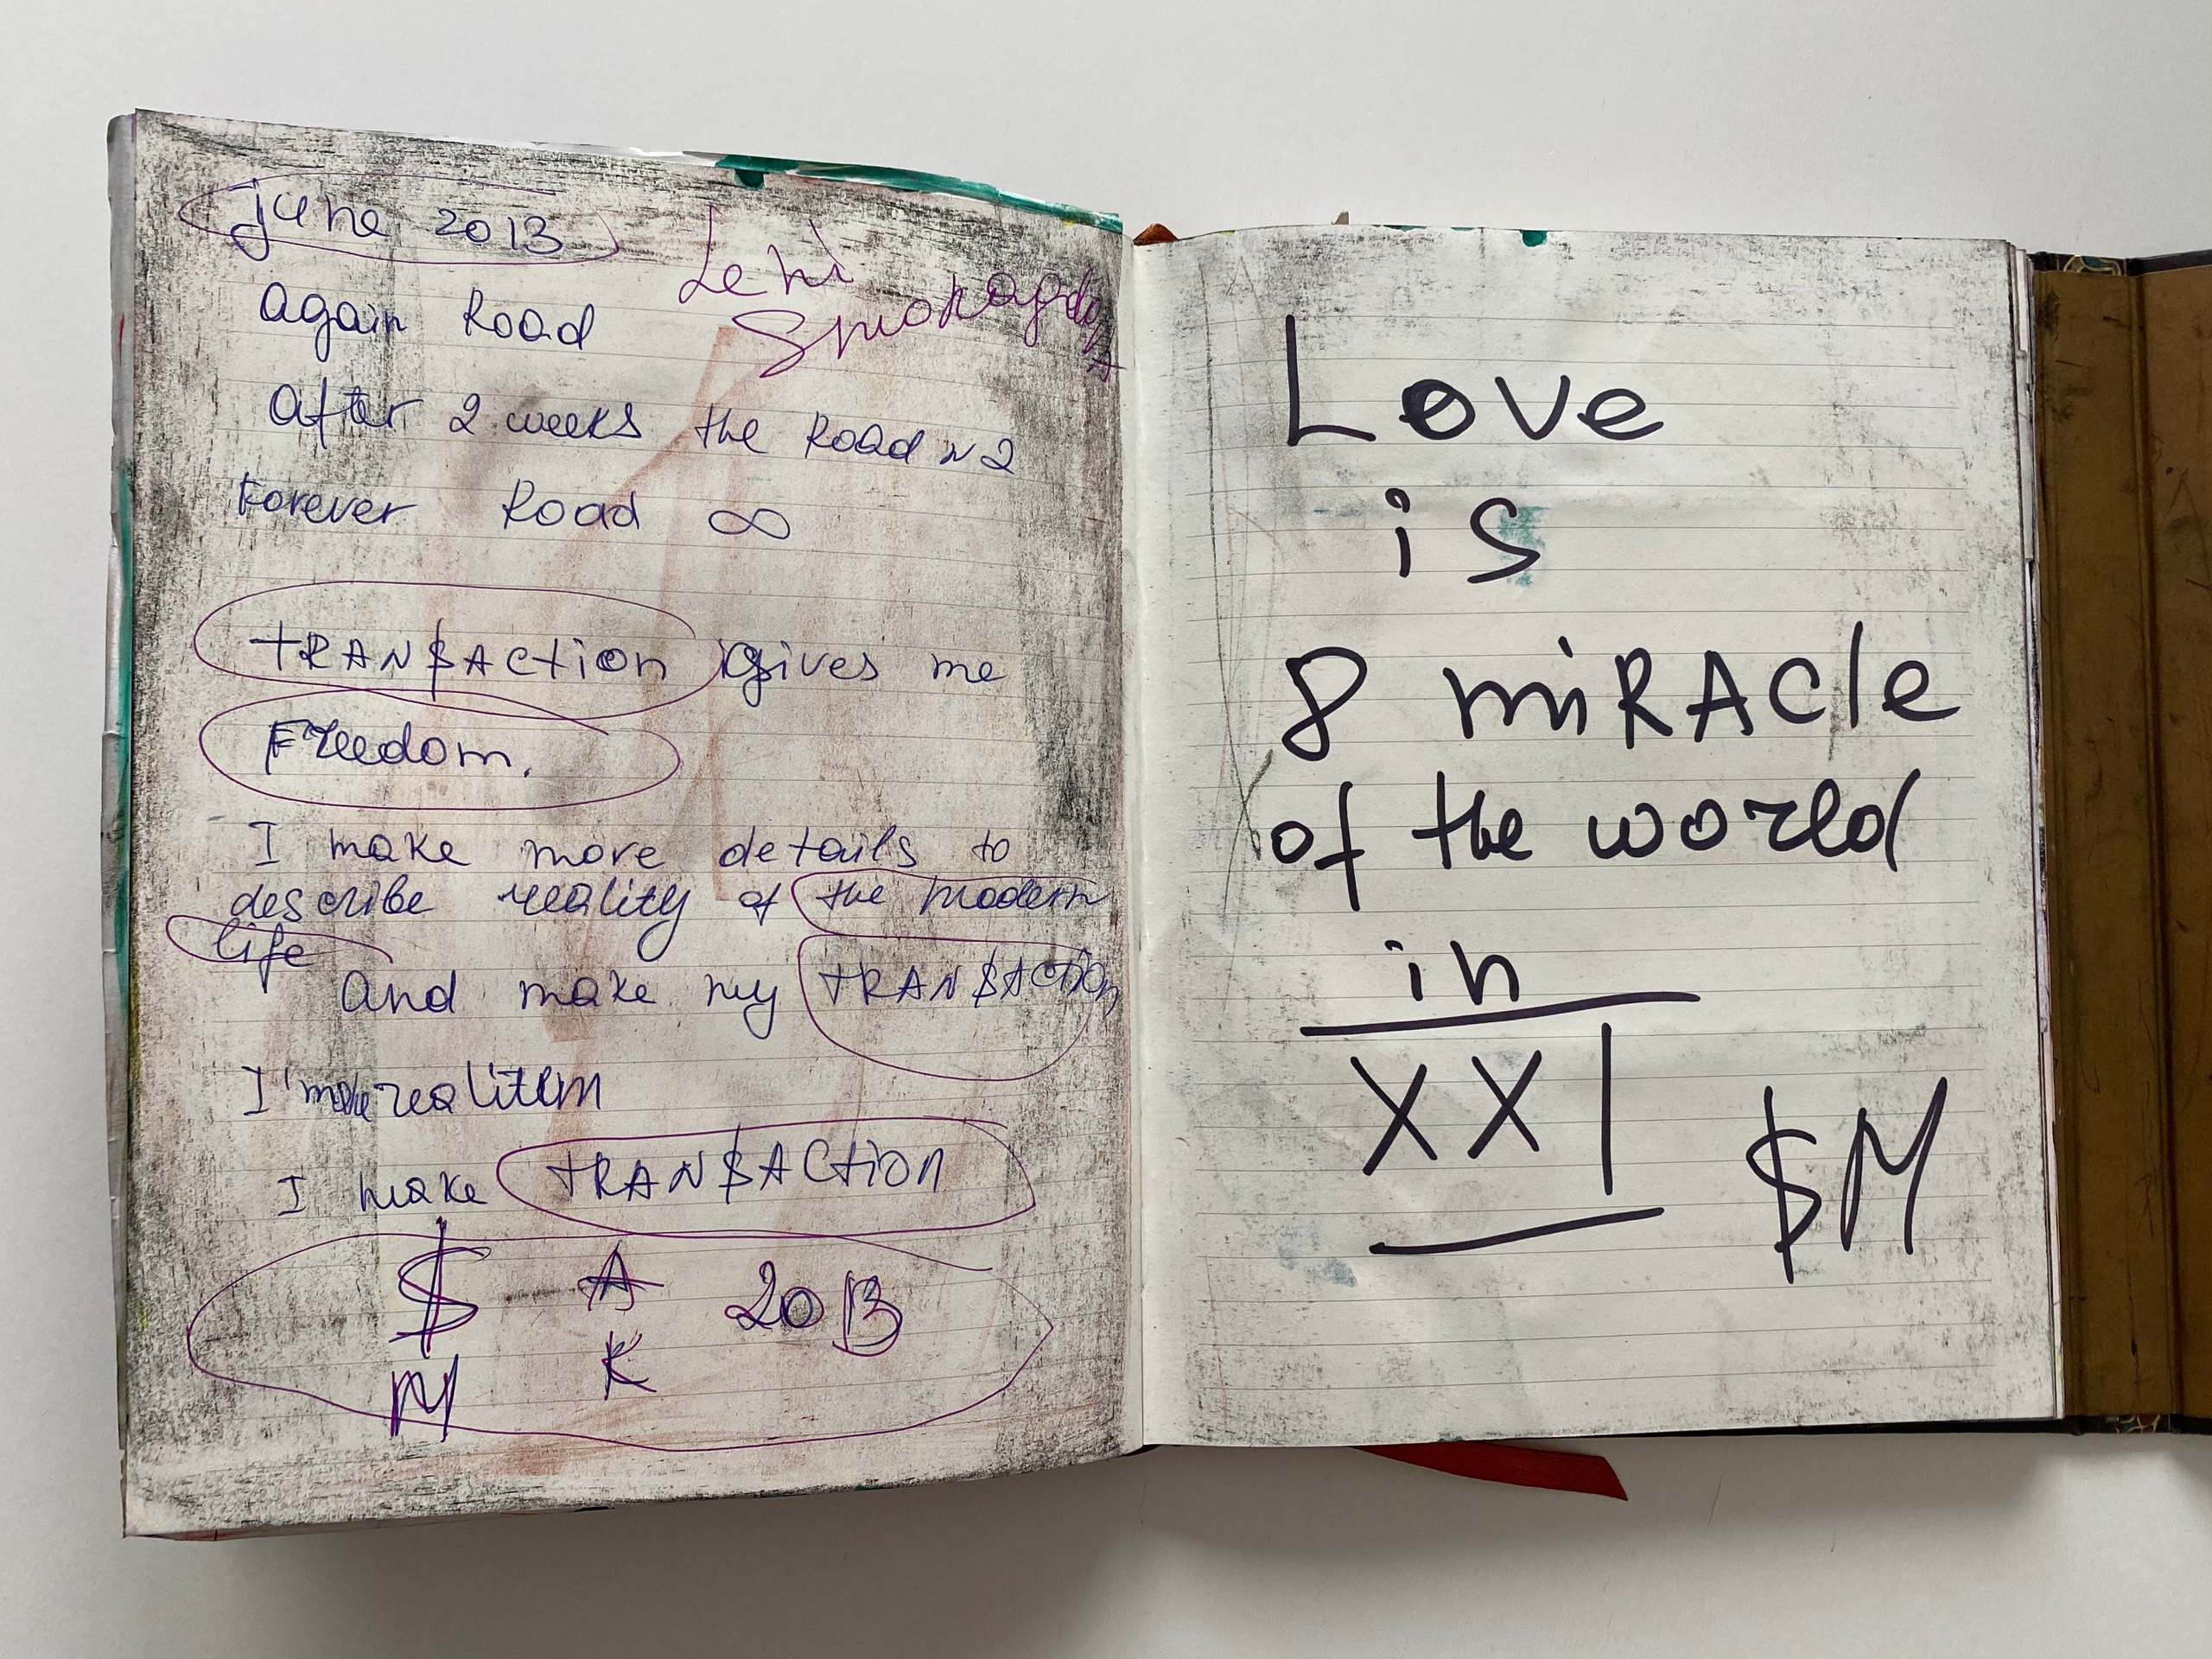 june 2013
Leni
Smaragdova
again Road
After 2 weeks the Road N2
Forever Road ∞
tRAN$ACtion gives me
Freedom.
I make more details to
describe reality of the modern
life
And make my tRAN$ACtion
I make
I make tRAN$ACtion
$ A 2013
M K
Love
is
8 miRACle
of the world
in
XXI
$M